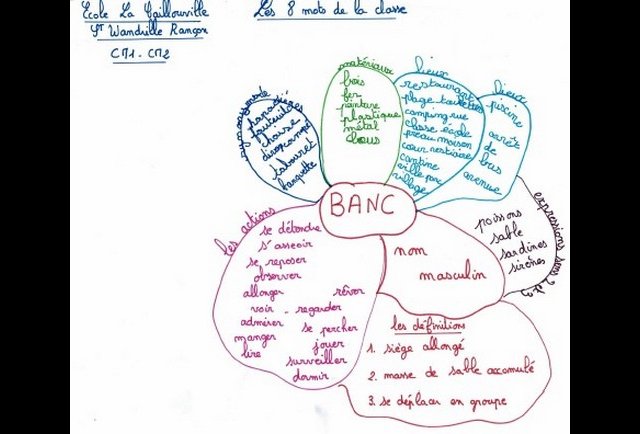 Ecole La Caillouville
St Wandrille Rançon
CM1 - CM2
Les 8 mots de la classe
synonymes
canapé
fauteuil
chaise
tabouret
banquette
matériaux
bois
fer
peinture
plastique
métal
clous
lieux
restaurant
plage toilettes
camping rue
classe école
préau maison
cour vestiaire
cantine
ville parc
village
lieux
piscine
arrêt
de
bus
avenue
BANC
les actions
se détendre
s'asseoir
se reposer
observer
allonger rêver
voir - regarder
admirer se percher
manger jouer
lire surveiller
dormir
nom
masculin
expressions
poissons
sable
sardines
sirènes
les définitions
1. siège allongé
2. masse de sable accumulé
3. se déplacer en groupe